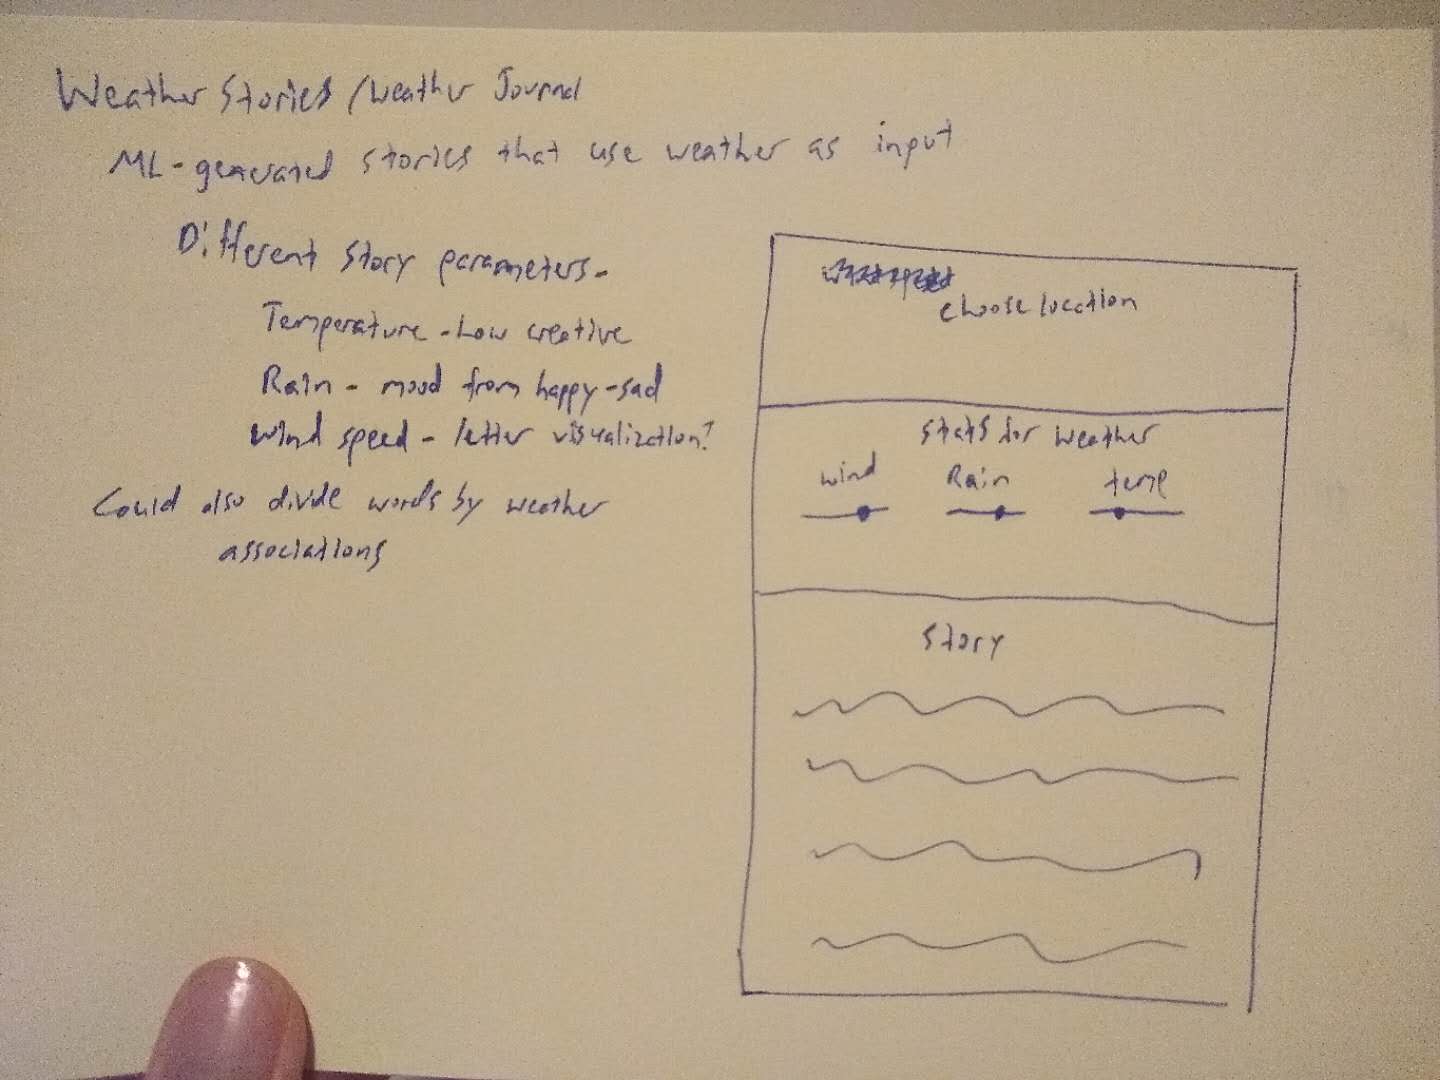 Weather Stories / Weather Journal
ML-generated stories that use weather as input
Different story parameters-
Temperature - how creative
Rain - mood from happy-sad
Wind speed - letter visualization?
Could also divide words by weather
associations
choose location
Stats for weather
wind Rain temp
Story